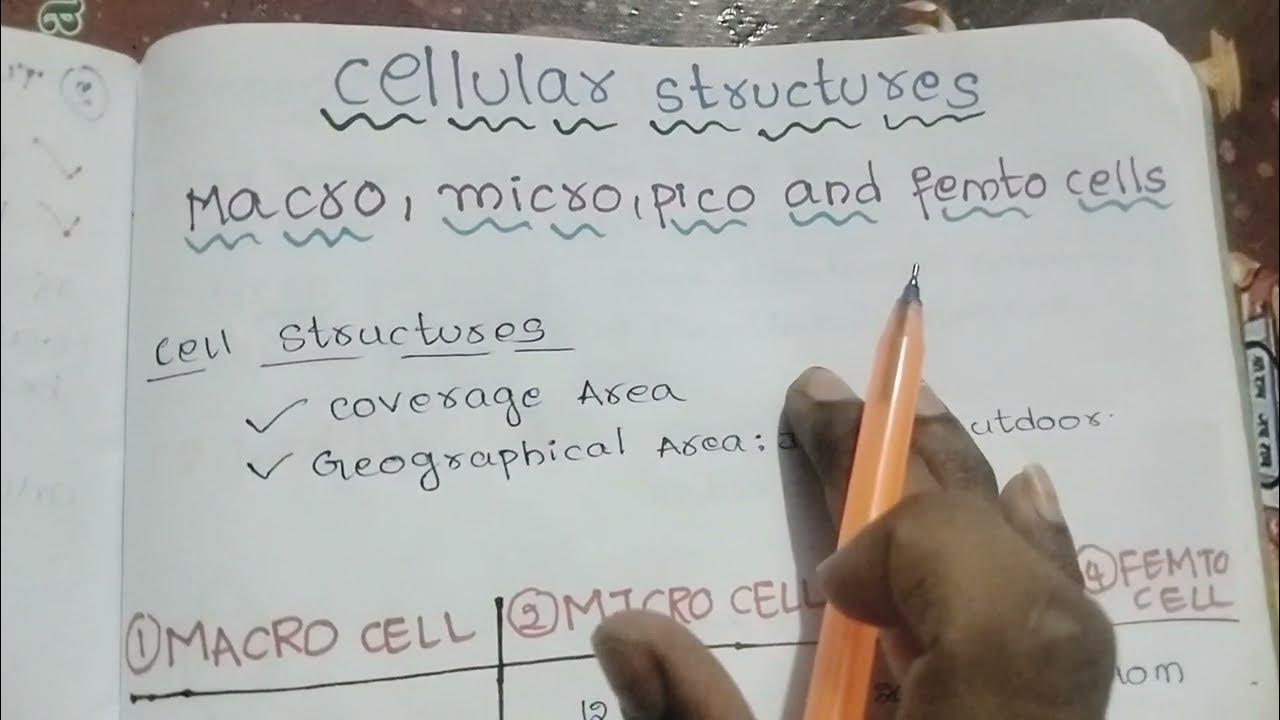 Cellular structures
Macro, micro, pico and femto cells
Cell structures
✓ coverage Area
✓ Geographical Area:
① MACRO CELL
② MICRO CELL
④ FEMTO
CELL
12
10m